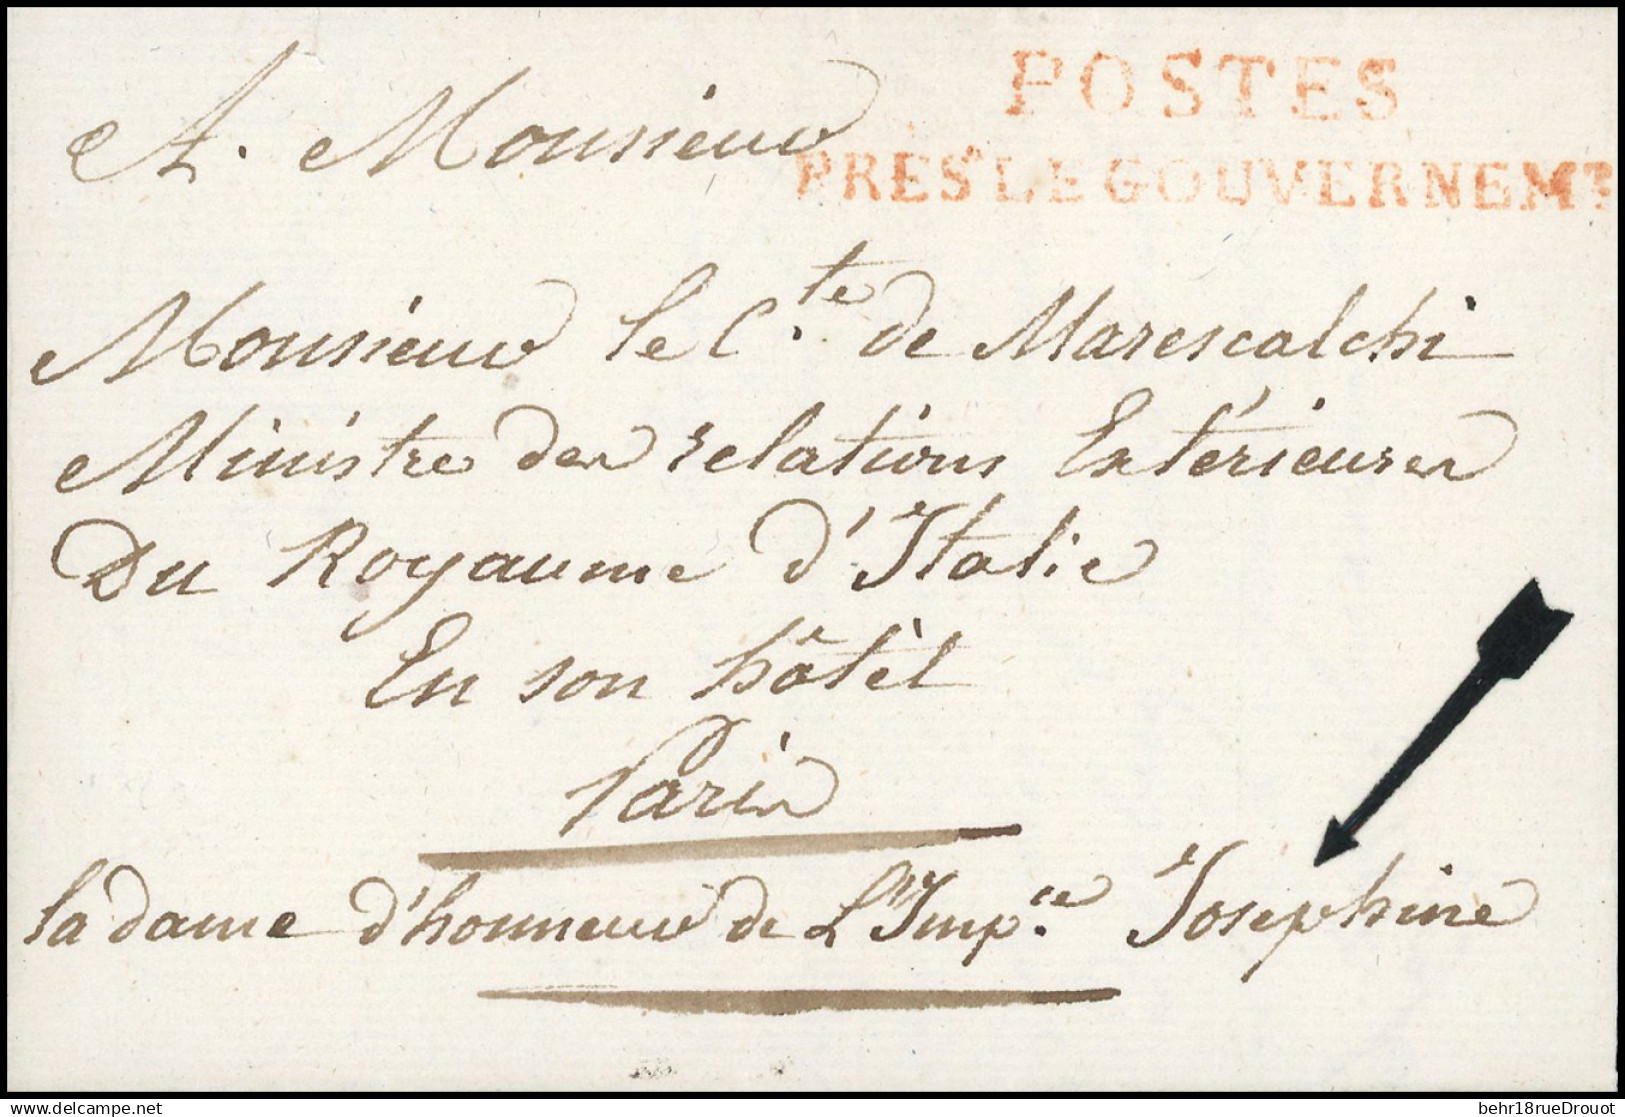 POSTES
PRES LE GOUVERNEMT
A. Monsieur
Monsieur le Cte. de Marescalchi
Ministre des relations Extérieures
Du Royaume d'Italie
En son hôtèl
Paris
la dame d'honneur de L'Imp.ce Josephine
delcampe.net
behr18rueDrouot